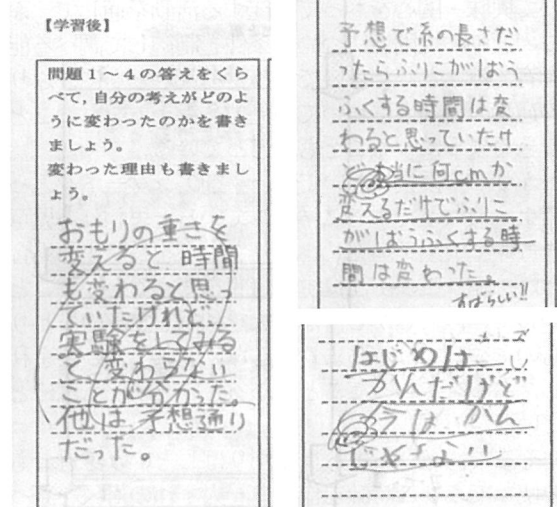 【学習後】
問題１～４の答えをくら
べて，自分の考えがどのよ
うに変わったのかを書き
ましょう。
変わった理由も書きまし
ょう。
おもりの重さを
変えると 時間
も変わると思っ
ていたけれど
実験をしてみる
と変わらない
ことが分かった。
他は、予想通り
だった。
予想で糸の長さだ
ったらふりこがおう
ふくする時間は変
わると思っていたけ
ど 本当に何cmか
変えるだけでふりこ
がおうふくする時
間は変わった。
すばらしい!!
はじめは
かんだけど
今は かん
じゃない